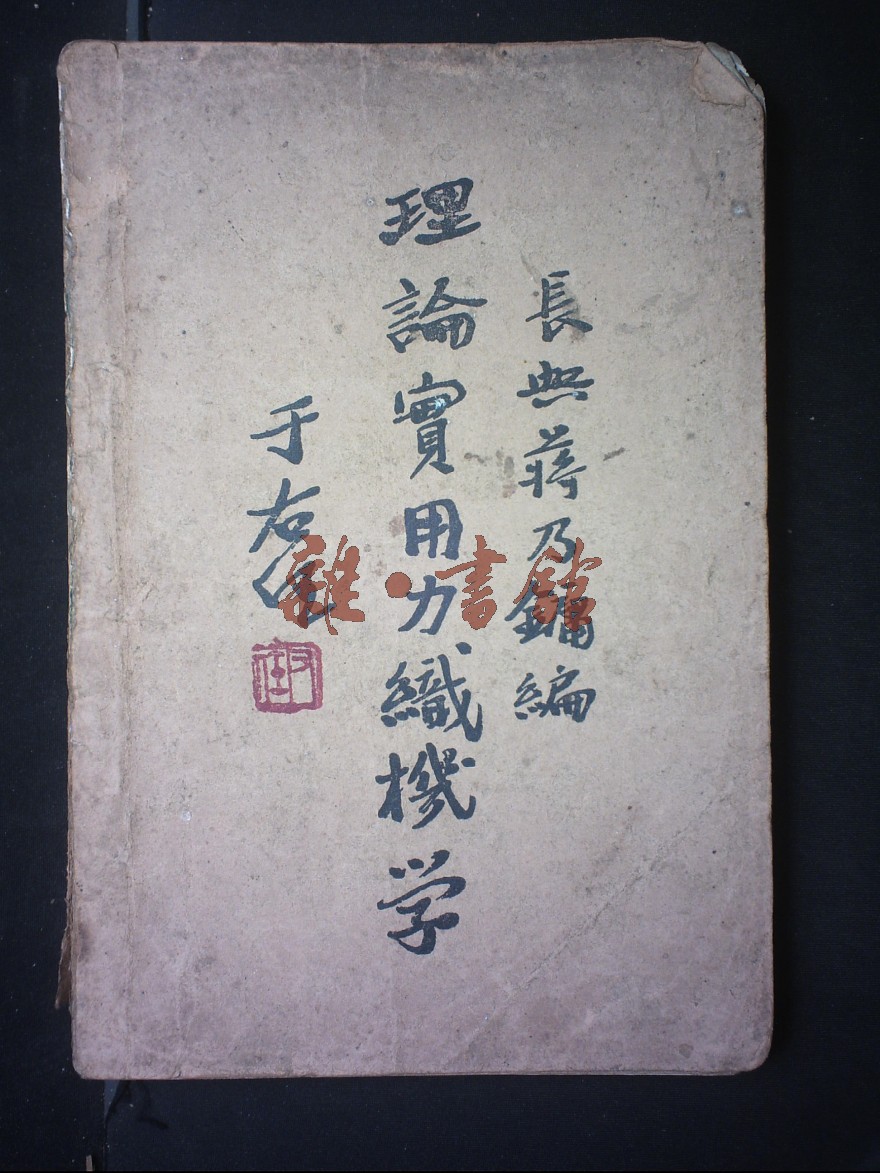 長興蔣乃鏞編
理論實用力織機学
于右任
雜·書館